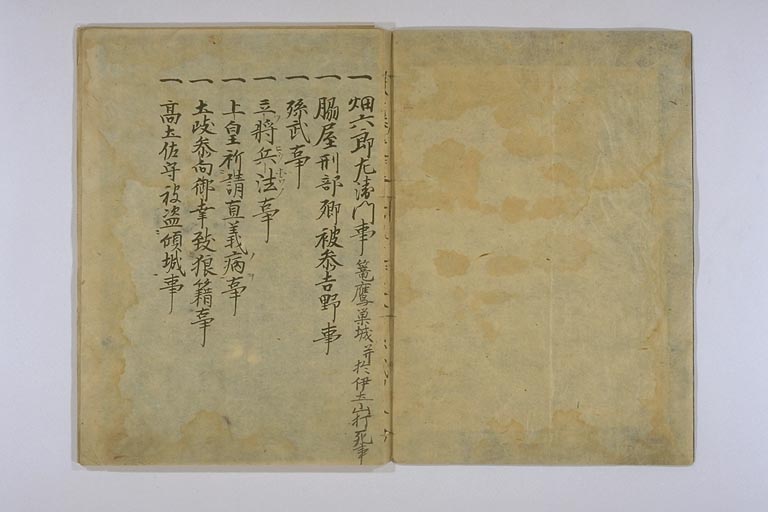 一 畑六郎左衛門事 篭鷹巣城 并於伊土山打死事
一 脇屋刑部卿被参吉野事
一 孫武事
一 立将兵法事
一 上皇祈請直義病事
一 土岐参向御幸致狼籍事
一 高土佐守被盗傾城事